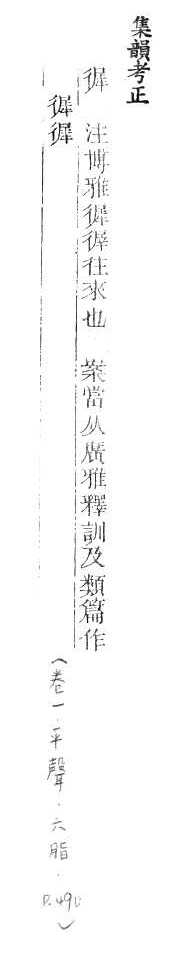 集韻考正
徲 注博雅徲徲往來也 案當从廣雅釋訓及類篇作
徲徲
(卷一.平聲.六脂.p.490)